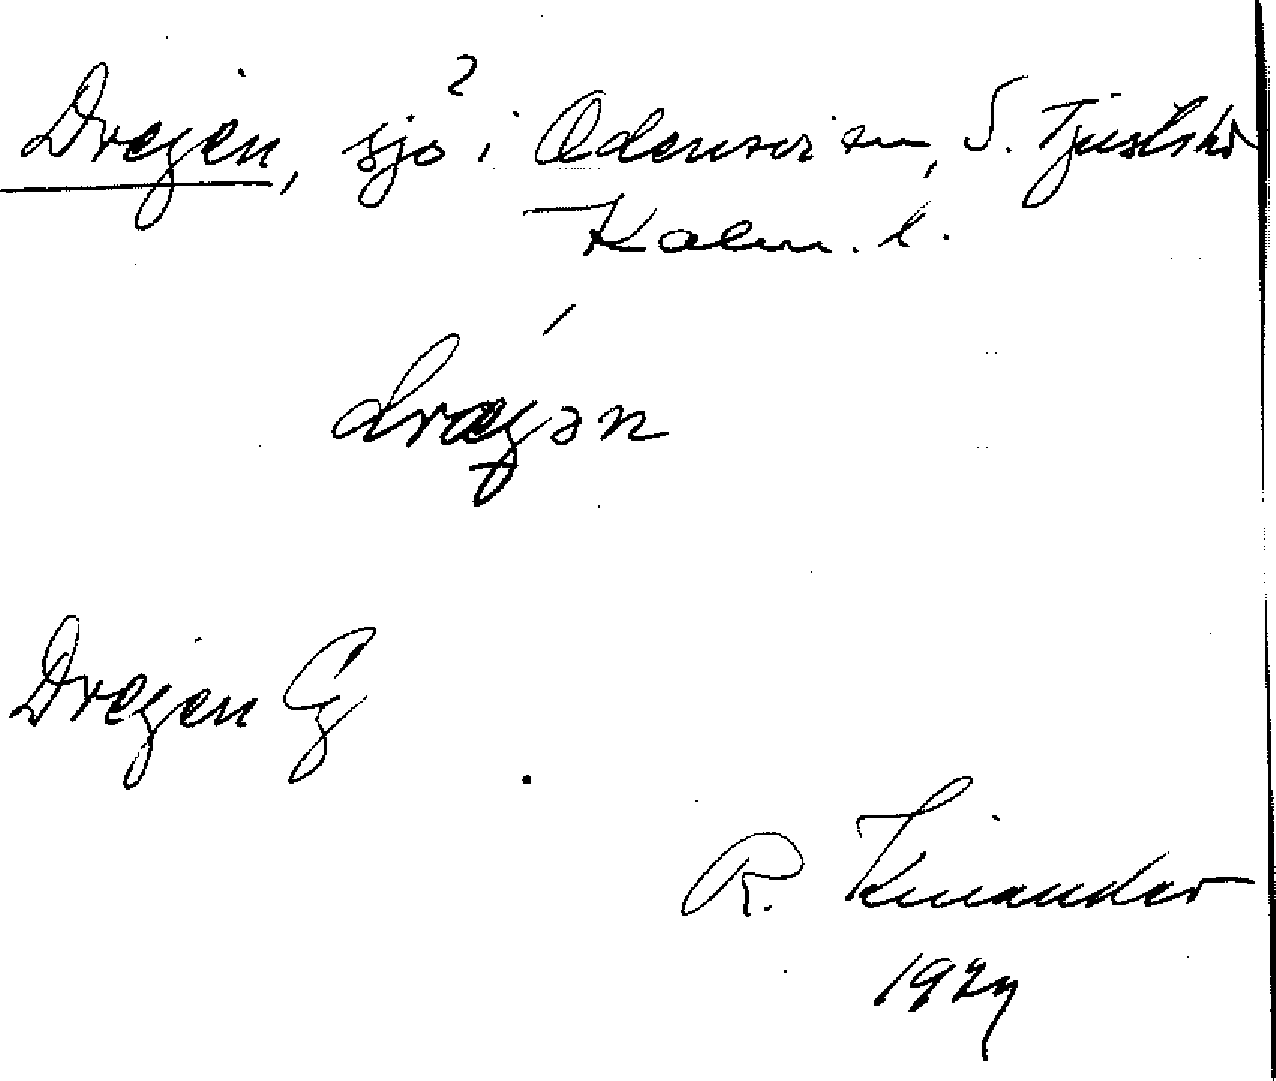 Dregen, sjö i Odensvi sn, S. Tjusts hd
Kalm. l.
drægən
Dregen
R. Kinander
1927